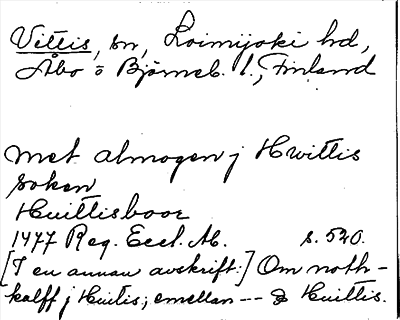 Vittis, sn, Loimijoki hd,
Åbo o Björneb. l., Finland
met almogen j Hwittis
soken
Huittisboor
1477 Reg. Eccl. Ab. s. 520.
[I en annan avskrift:] Om noth-
kalff j Huitis; emellan --- & Huittis.